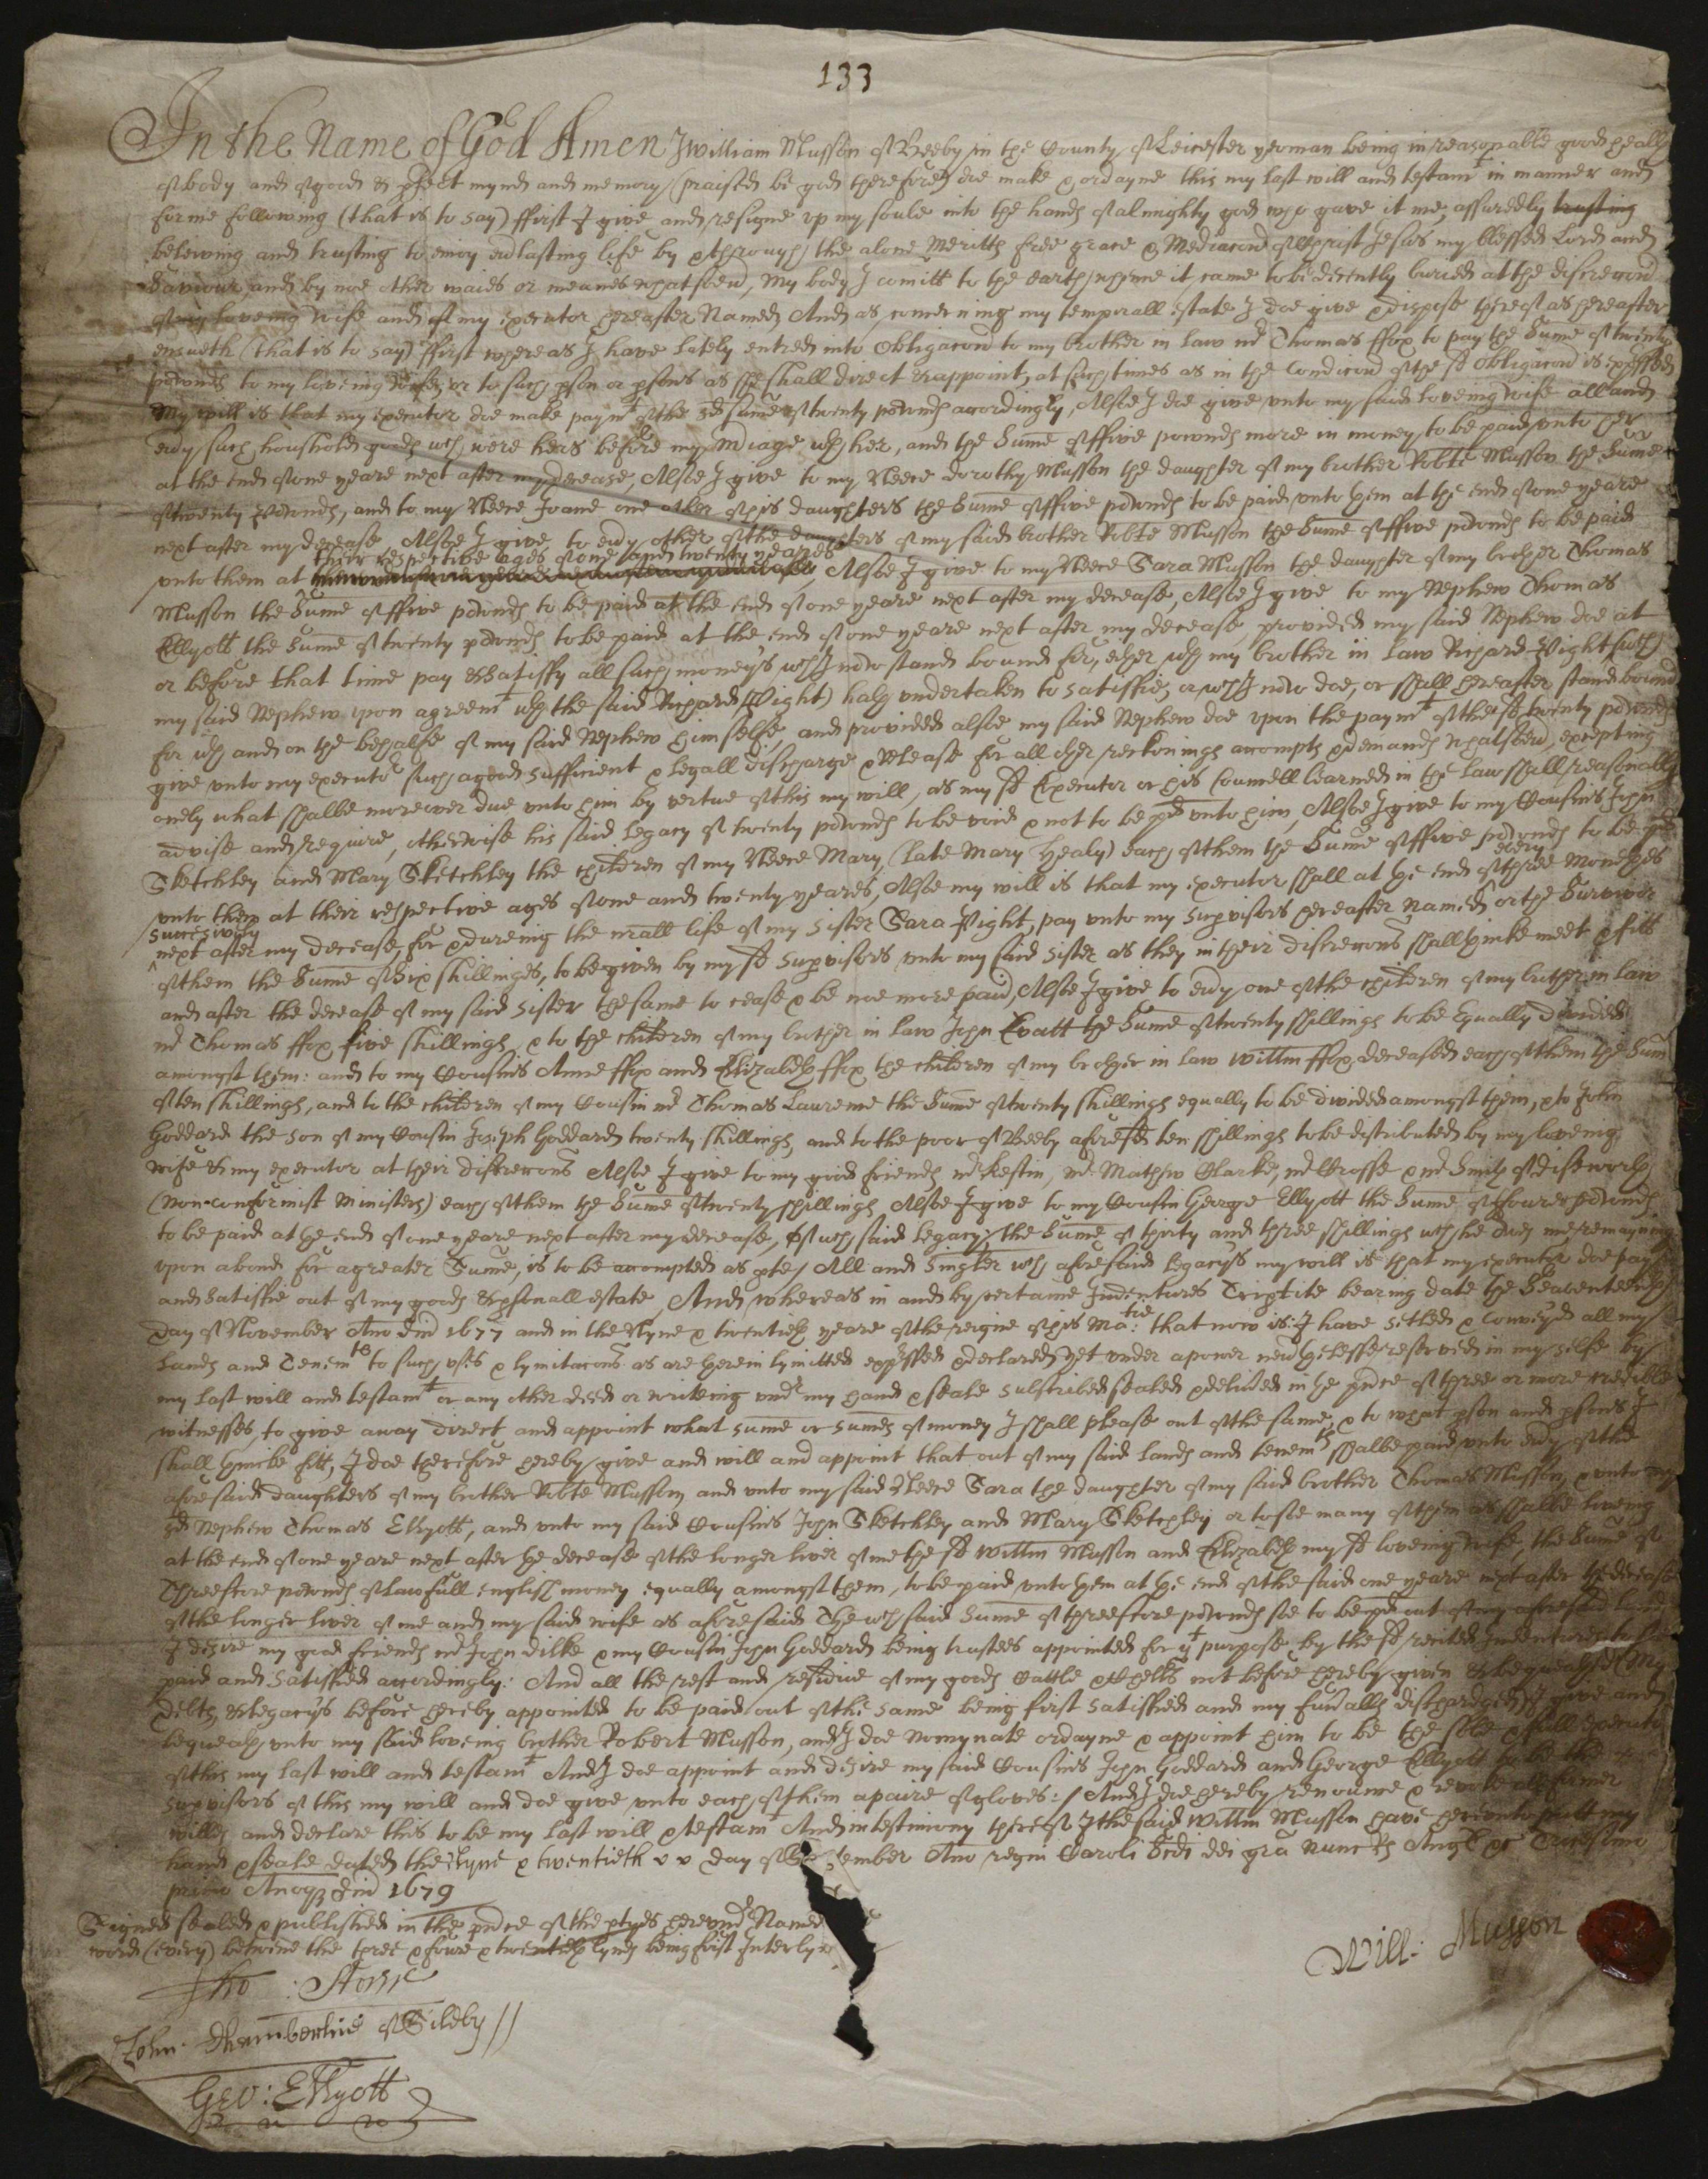 133
In the Name of God Amen I William Musson of Beeby in the County of Leicester yeoman being in reasonable good health
of body and of good & pfect mynd and memory (praised be god therefore) doe make & ordayne this my last will and testamt in manner and
forme following (that is to say) ffirst I give and resigne vp my soule into the hands of almighty god who gave it me, assuredly trusting
beleiving and trusting to enioy evlasting life by & through the alone Meritts free grace & Mediacond of Christ Jesus my blessed Lord and
Saviour, and by noe other waies or meanes whatsoevr, My body I comitt to the earth whence it came to be decently buried at the discrecond
of my loveing wife and of my executor hereafter Named And as concerning my temporall estate I doe give & dispose thereof as hereafter
ensueth (that is to say) ffirst whereas I have lately entred into Obligacond to my brother in law mr Thomas ffox to pay the Sume of twenty
pownds to my loveing wife, or to such pson or psons as she shall direct & appoint, at such times as in the Condicond of the sd Obligacond is expssed
My will is that my executor doe make paymt of the sd sume of twenty pownds accordingly, Alsoe I doe give vnto my said loveing wife all and
evy such houshold goods wch were hers before my mriage wth her, and the Sume of ffive pownds more in money to be paid vnto her
at the end of one yeare next after my decease, Alsoe I give to my Neece dorothy Musson the daughter of my brother Robte Musson the Sume
of twenty pownds, and to my Neece Joane one other of his daughters the Sume of ffive pownds to be paid vnto them at the end of one yeare
next after my decease Alsoe I give to evy other of the daughters of my said brother Robte Musson the Sume of ffive pownds to be paid
their respective ages of one and twenty yeares
vnto them at, Alsoe I give to my Neece Sara Musson the daughter of my brother Thomas
Musson the Sume of ffive pownds to be paid at the end of one yeare next after my decease, Alsoe I give to my Nephew Thomas
Ellyott the Sume of twenty pownds to be paid at the end of one yeare next after my decease provided my said Nephew doe at
or before that time pay & satisfy all such money's wch I now stand bound for, either wth my brother in law Richard Wight (wch
my said Nephew vpon agreemt wth the said Richard Wight) hath vndertaken to satisfie, or wch I now doe, or shall hereafter stand bound
for wth and on the behalfe of my said Nephew himselfe, and provided alsoe my said Nephew doe vpon the paymt of the sd twenty pownds
give vnto my executor such a good sufficient & legall discharge & Release for all other reckonings accompts & demands whatsoevr, excepting
onely what shalbe moreover due vnto him by vertue of this my will, as my sd Executor or his Councell learned in the Law shall reasonably
advise and require, otherwise his said legacy of twenty pownds to be void & not to be pd vnto him, Alsoe I give to my Cousins John
Sketchley and Mary Sketchley the children of my Neece Mary (late Mary Healy) each of them the Sume of ffive pownds to be pd
every
vnto them at their respective ages of one and twenty yeares, Alsoe my will is that my executor shall at the end of three Moneths
Successively
next after my decease, for & dureing the nrall life of my sister Sara Wight, pay vnto my supvisors hereafter named or the Survivor
of them the Sume of Six shillinges, to be given by my sd supvisors vnto my said sister as they in their discrecons shall thinke meet & fitt
and after the decease of my said sister the same to cease & be noe more paid, Alsoe I give to evy one of the children of my brother in law
mr Thomas ffox five shillings, & to the children of my brother in law John Evatt the Sume of twenty shillings to be Equally divided
amongst them: and to my Cousins Anne ffox and Elizabeth ffox the children of my brother in law Willm ffox deceased each of them the Sum
of ten shillings, and to the children of my Cousin mr Thomas Lawrence the Sume of twenty shillings equally to be divided amongst them, & to John
Goddard the son of my Cousin Joseph Goddard twenty shillings, and to the poor of Beeby aforesd ten shillings to be distributed by my loveing
wife & my executor at their discrecons Alsoe I give to my good friends mr Kestin, mr Mathew Clarke, mr Crosse & mr Smith of diseworth
(Non-conformist Ministers) each of them the Sume of twenty shillings Alsoe I give to my Cousin George Ellyott the Sume of foure pownds
to be paid at the end of one yeare next after my decease, of wch said legacy the Sume of thirty and three shillings wch he owes me remayning
vpon a bond for a greater Sume, is to be accompted as pte, All and Singler wch aforesaid legacy's my will is that my executor doe pay
and Satisfie out of my goods & psonall estate, And whereas in and by certaine Indentures Triptite bearing date the Seaventeenth
day of November Ano dni 1677 and in the Nyne & twentieth yeare of the reigne of his Matie that now is: I have setled & conveyed all my
Lands and Tenemts to such vses & lymitacons as are therein lymitted expssed & declared, Yet vnder a power nevrthelesse reserved in my selfe by
my last will and testamt or any other deed or writeing vndr my hand & seale subscribed sealed & delivred in the prsence of three or more credible
witnesses, to give away direct and appoint what sume or sumes of money I shall please out of the same, & to what pson and psons I
shall thinke fitt, I doe therefore hereby give and will and appoint that out of my said lands and tenemts shalbe paid vnto evy of the
aforesaid daughters of my brother Robte Musson, and vnto my said Neece Sara the daughter of my said brother Thomas Musson, & vnto my
sd Nephew Thomas Ellyott, and vnto my said Cousins John Sketchley and Mary Sketchley or to soe many of them as shalbe liveing
at the end of one yeare next after the decease of the longer liver of me the sd Willm Musson and Elizabeth my sd loveing wife, the Sume of
Threescore pownds of lawfull english money equally amongst them, to be paid vnto them at the end of the said one yeare next after the decease
of the longer liver of me and my said wife as aforesaid The wch said Sume of threescore pownds soe to be pd out of my aforesaid lands
I desire my good friends mr John dilke & my Cousin John Goddard being trustees appointed for yt purpose by the sd recited Indentures to see
paid and satisfied accordingly: And all the rest and residue of my goods Cattle & Chells not before hereby given & bequeathed (my
debts & legacy's before hereby appointed to be paid out of the same being first satisfied and my funrally dischardged) I give and
bequeath vnto my said loveing brother Robert Musson, and I doe Nomynate ordayne & appoint him to be the sole & full executor
of this my last will and testamt And I doe appoint and desire my said Cousins John Goddard and George Ellyott to be the
supvisors of this my will and doe give vnto each of them a paire of gloves: / And I doe hereby renounce & revoke all former
wills and declare this to be my last will & testamt And in testimony thereof I the said Willm Musson have herevnto putt my
hand & seale dated the Nyne & twentieth day of ember Ano regni Caroli Scdi dei gra nunc Rs Angl &c Tricesimo
primo Anoq dni 1679
Signed sealed & published in the prsence of the ptyes herevndr Named
word (every) betwene the three & foure & twentieth lynes being first Interly
Tho: Storie
John Chamberline of Sileby //
Geo: Ellyott
Will: Musson